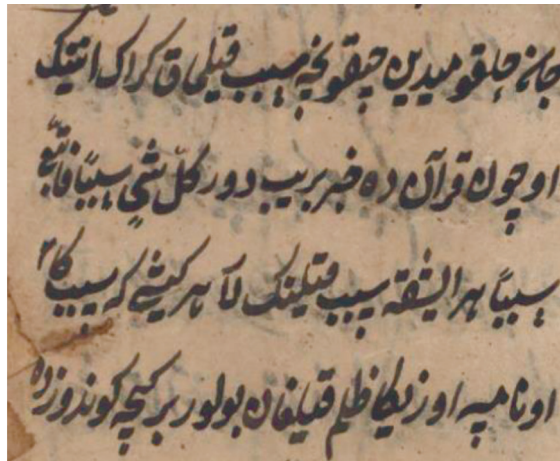 جانے حلقومیدین چیقونچه سبب قیلماق کراک انینک
اوچون قرآن ده خبر بریب دور کلّ شیٍ سببًا فاتبع
سببًا هر ایشقه سبب قیلینک لار هر کیشے که سبب کا
اونامسه اوزیکا ظلم قیلغان بولور بر کیچه کوندوزده